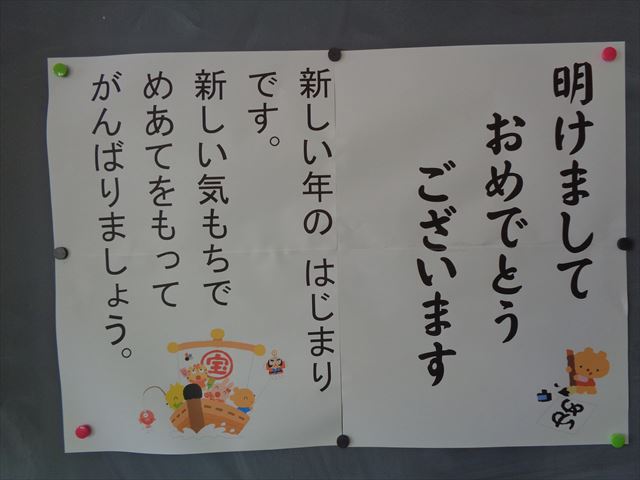 明けまして
おめでとう
ございます
新しい年の はじまり
です。
新しい気もちで
めあてをもって
がんばりましょう。
宝